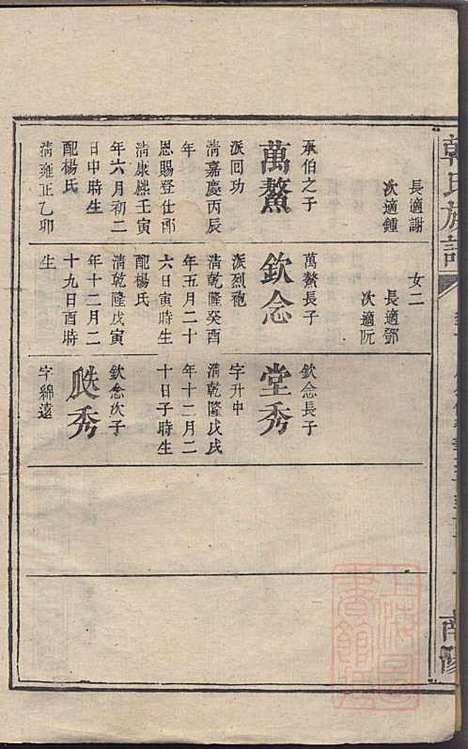 韓氏族譜
長適謝
次適鍾
承伯之子
萬鰲
派回功
清嘉慶丙辰
年
恩賜登仕郎
清康熙壬寅
年六月初二
日申時生
配楊氏
清雍正乙卯
女二
長適鄧
次適阮
萬鰲長子
欽念
派烈苑
清乾隆癸酉
年五月二十
六日寅時生
配楊氏
清乾隆戊寅
年十二月二
十九日酉時
生
欽念長子
堂秀
字升中
清乾隆戊戌
年十二月二
十日子時生
欽念次子
殿秀
字綿遠